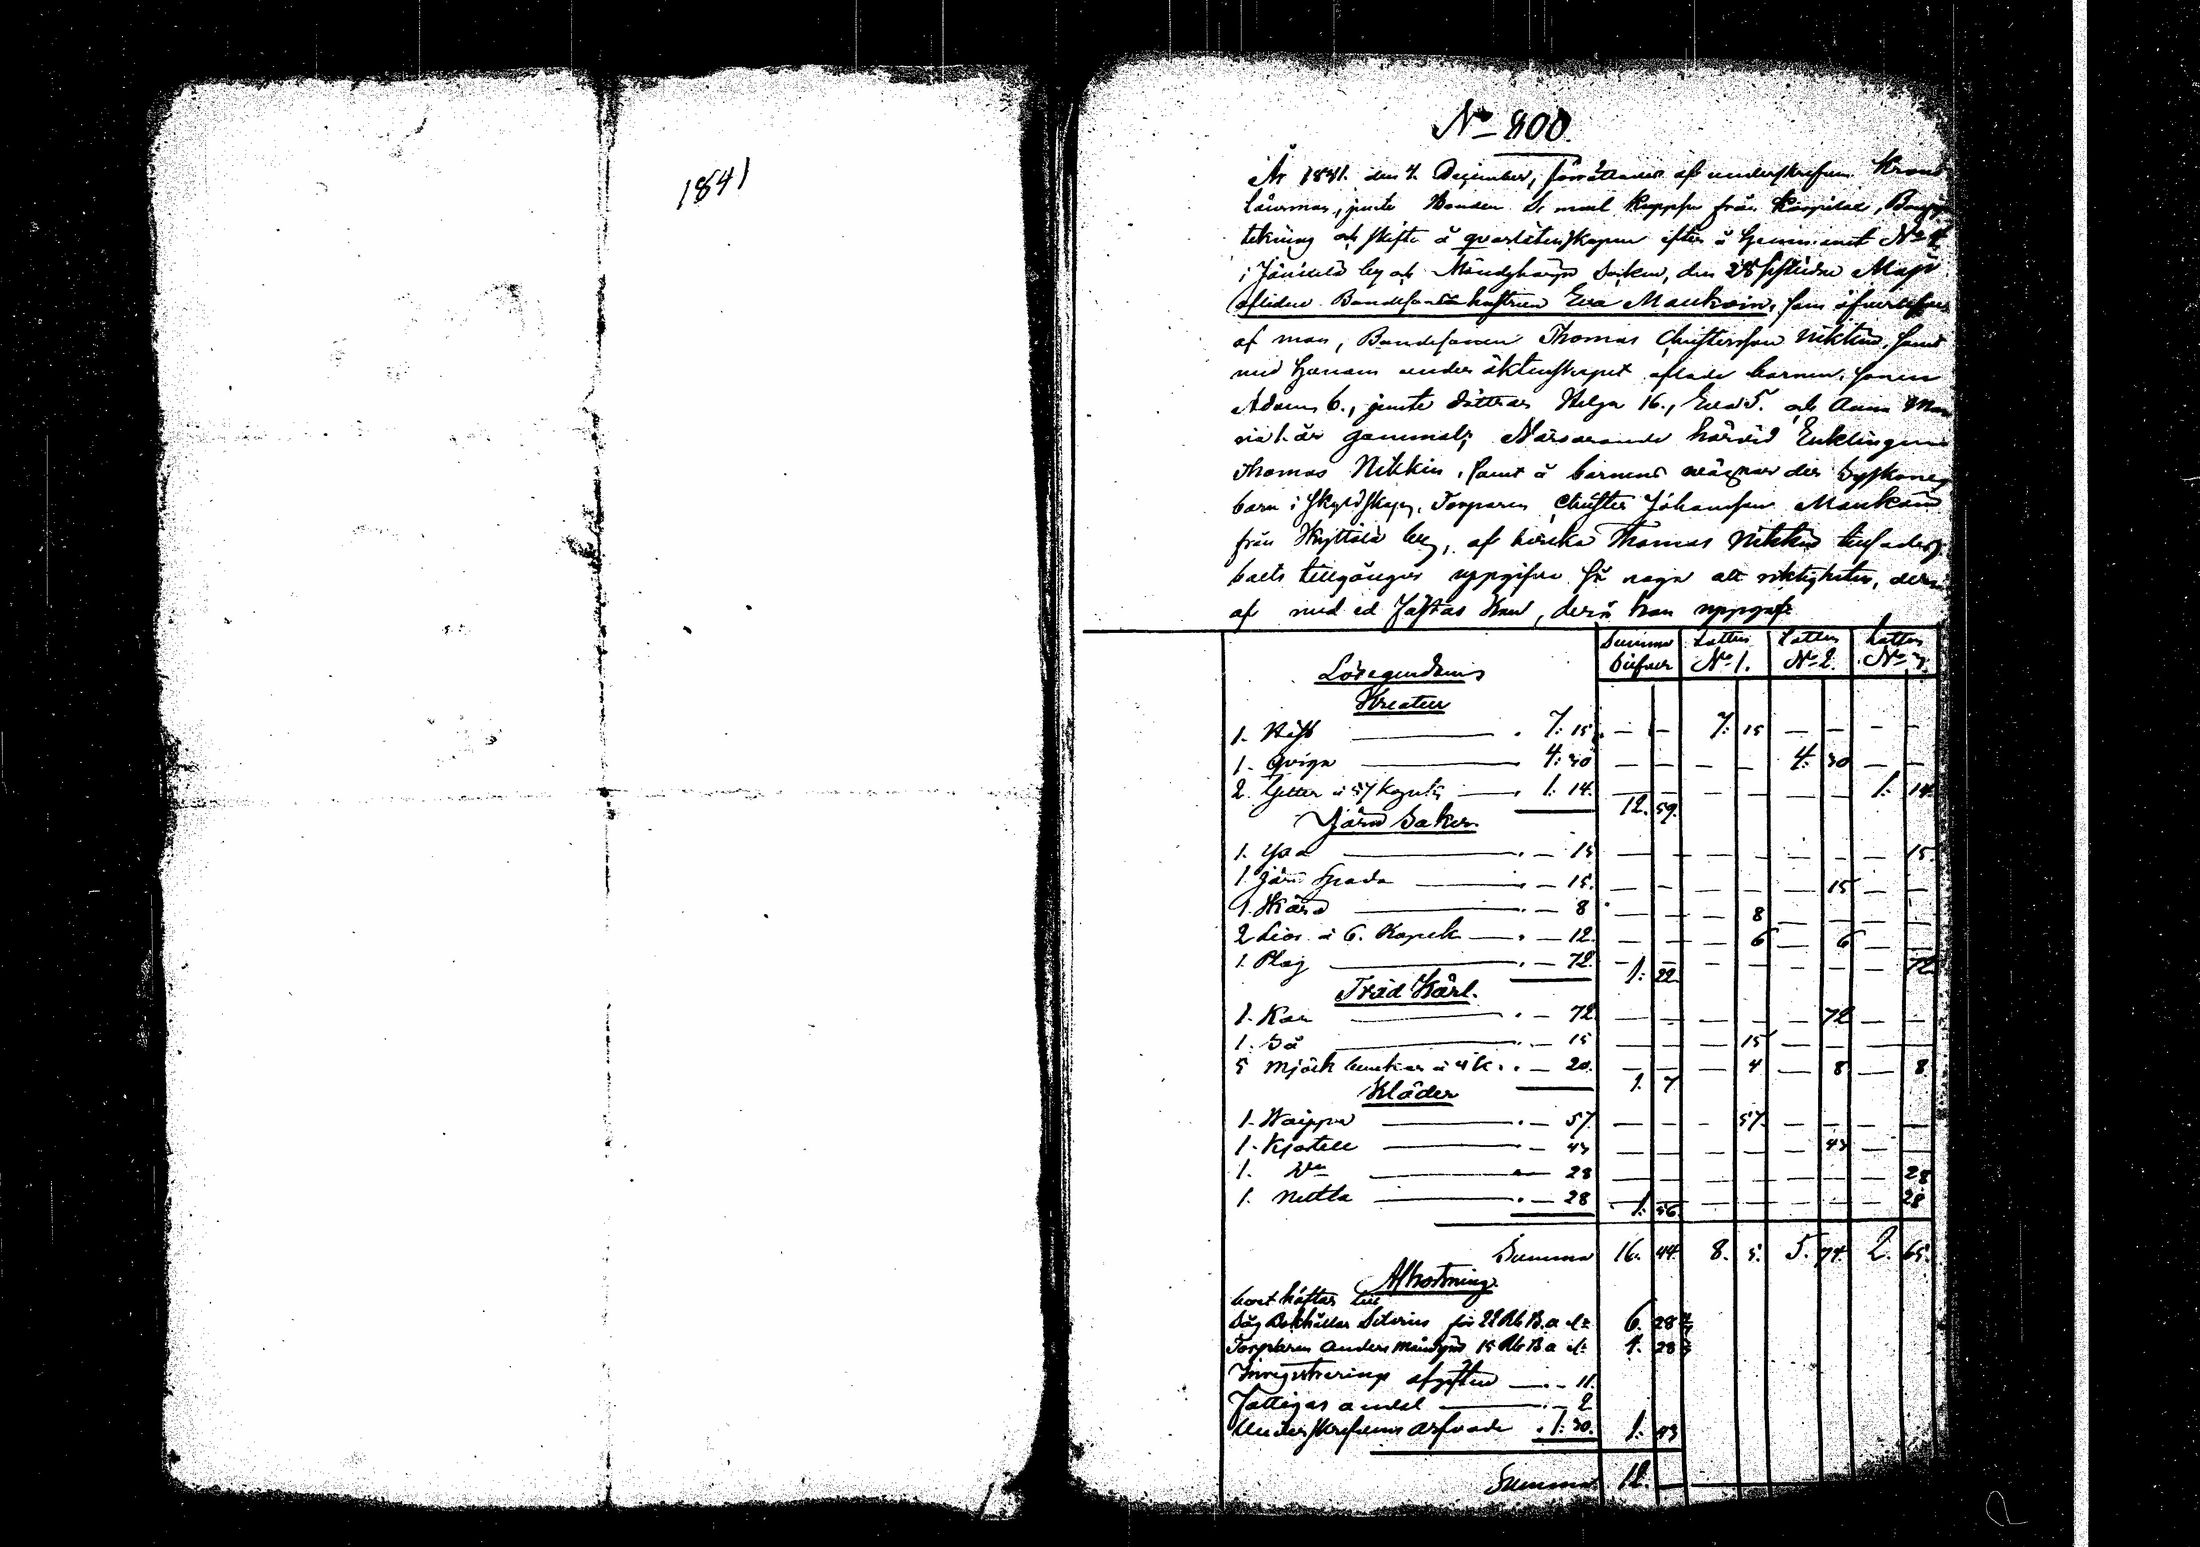 1841
No 800.
År 1841. den 4. December, förrättades af underskrifven Krono
länsman, jemte Bonden Kappe från Kaspitae,
tekning och skifte å qvarlåtenskapen efter å Hemmanet No
i by och Socken, den 28 sistledne Maji
aflidne Bondesonshustrun Eva Maukoin, som öfverlefves
af man, Bondesonen Thomas Christersson Nikkin, samt
med honom under äktenskapet aflade barnen, sonen
Adam 6., jemte döttrar Helga 16., Eva 5. och Anna Ma
ria 1. år gammal; Närvarande härvid Enklingen
Thomas Nikkin, samt å barnens vägnar der Syskone
barn i skyldskap, Torparen Christer Johansson Maukoin
från by, af hvilka Thomas Nikkin
boets tillgångar uppgifva så noga att riktigheten, der
af med ed fästas kan, derå han uppgaf:
Summa Silfver Lotten No 1. Lotten No 2. Lotten No 3.
Lösegendom
Kreatur
1. Häst 7: 15. — — 7: 15 — — — —
1. Qviga 4: 30 — — — — 4: 30 — —
2. Getter à 57 kopek 1: 14. 12. 59. — — — — 1: 14.
Järn Saker
1. Yxa — 15 — — — — — — — 15.
1. Järn Spada — 15. — — — — — 15 — —
1. Skära — 8 — — — 8 — — — —
2 Liar à 6. Kopek — 12. — — — 6 — 6 — —
1. Plog — 72. 1: 22. — — — — — 72
Träd Kärl.
1. Kar — 72 — — — — — 72 — —
1. Så — 15 — — — 15 — — — —
5 Mjölk bunkar à 4 k. — 20. 1. 7 — 4 — 8 — 8.
Kläder
1. — 57. — — — 57. — — — —
1. Kjortell — 43 — — — — — 43 — —
1. Do — 28 — — — — — — — 28
1. — 28 1. 56. — — — — — 28
Summa 16. 44. 8. 5. 5. 74. 2. 65.
Afkortning
boet häftar till
Bokhållar för 22 Rb B. a 6. 28
Torparen Anders 15 Rb B a 4. 28
Inregistrerings afgiften — 11.
Fattigas andel — 2
Underskrifvens arfvode 1: 30. 1. 43
Summa 12. —